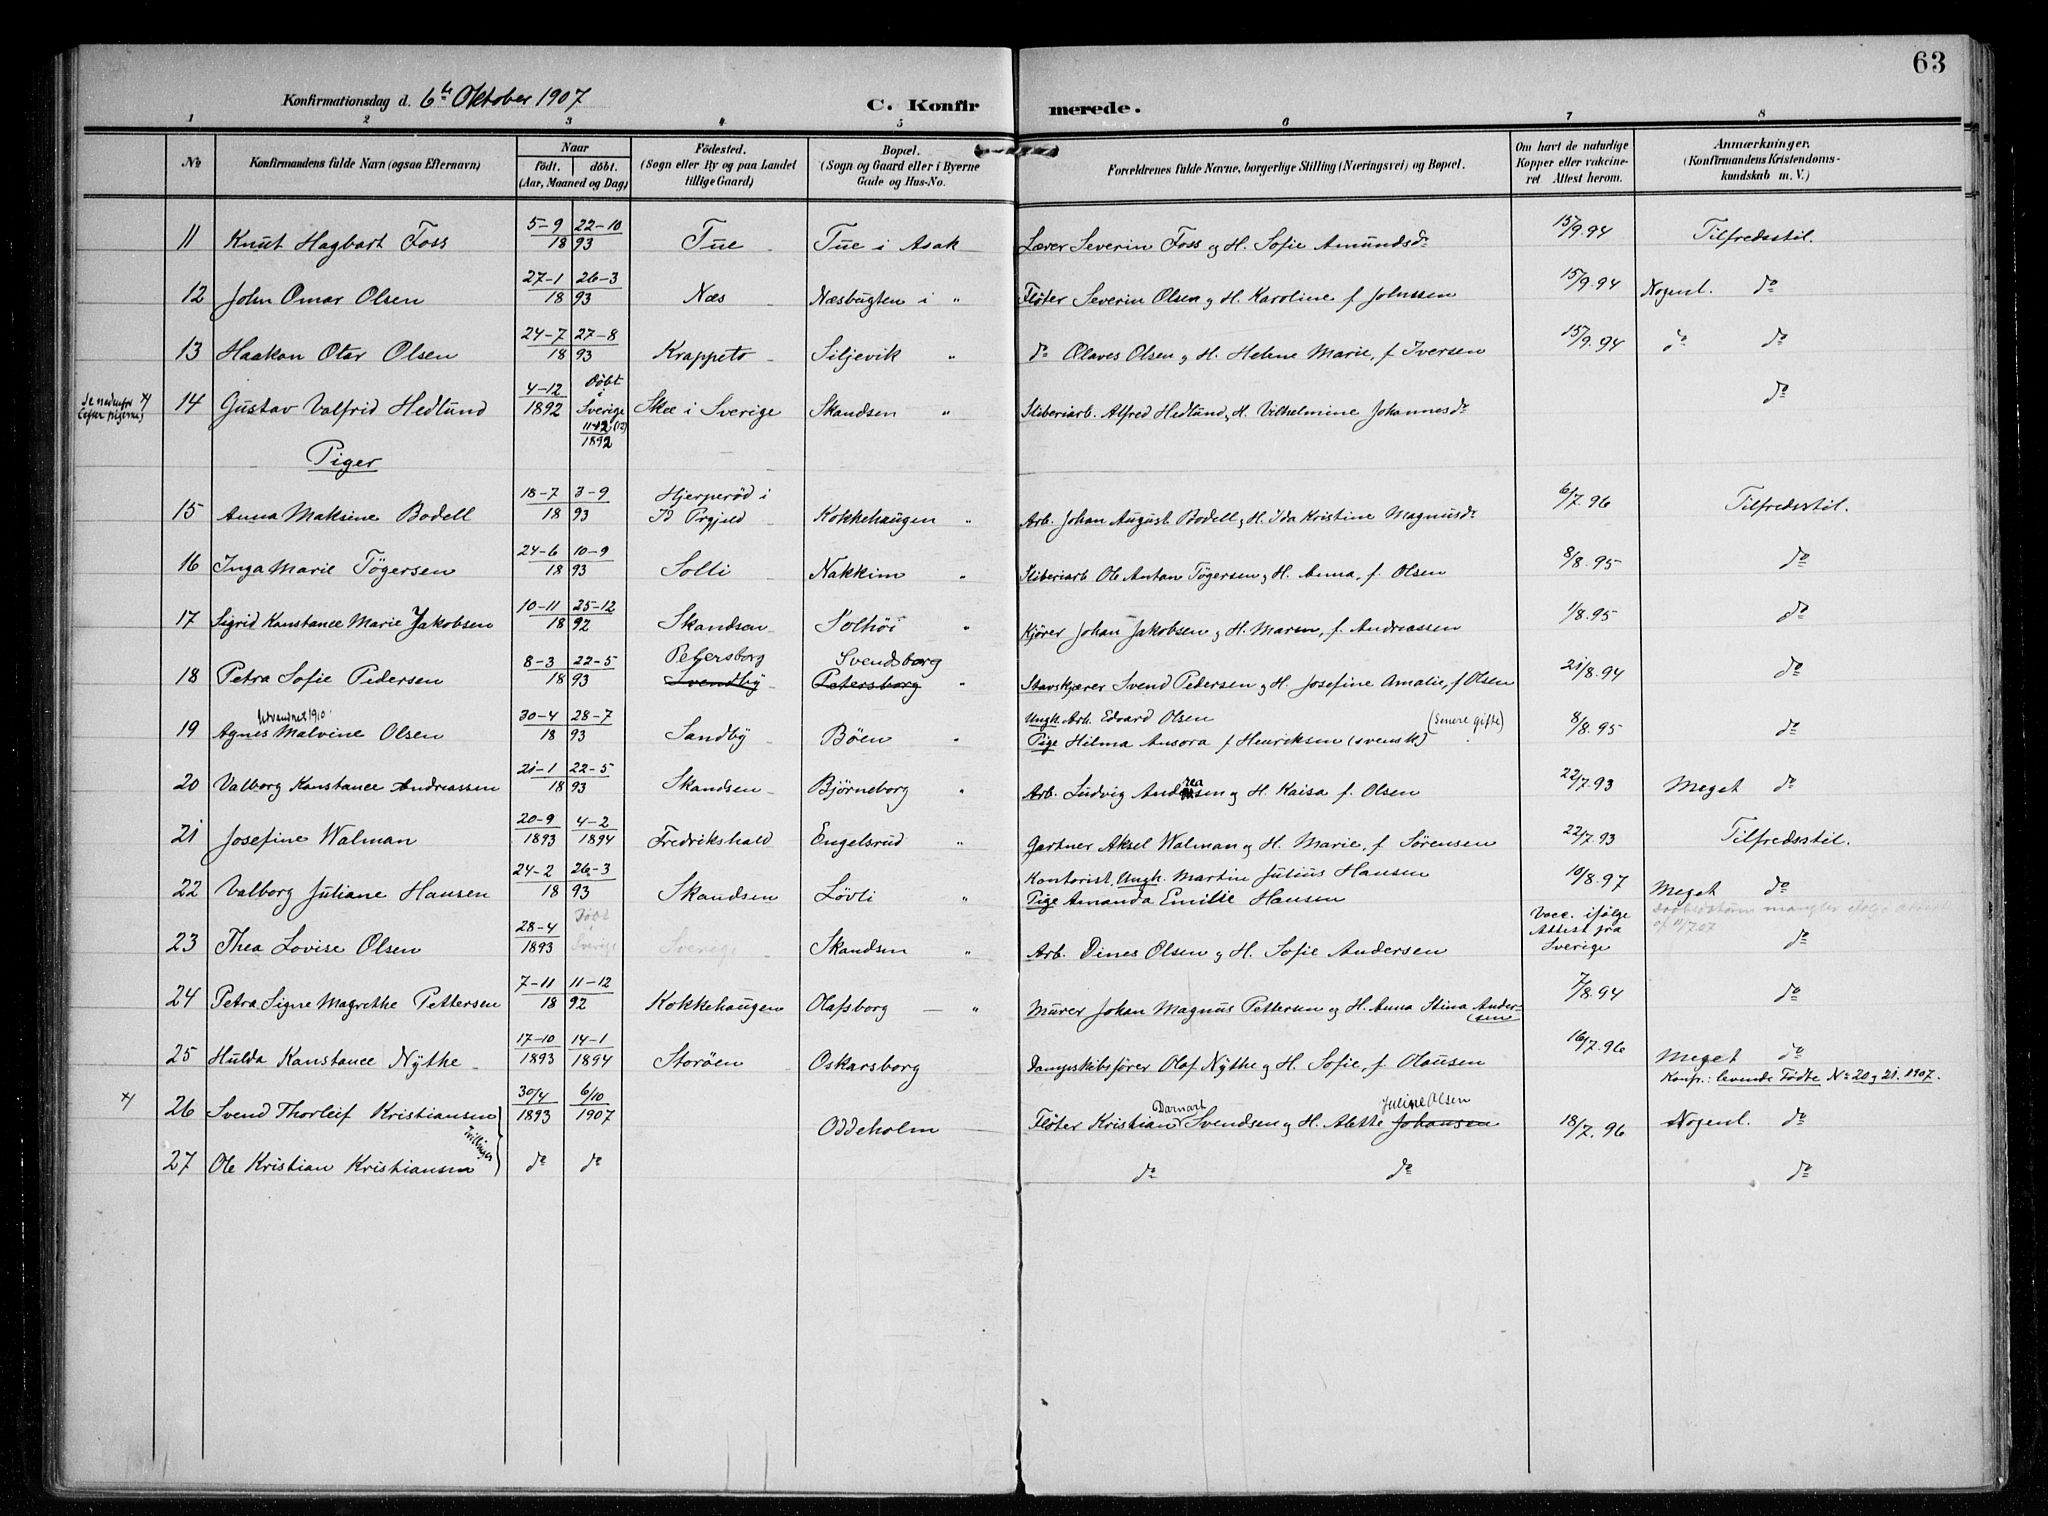 63
Konfirmationsdag d. 6te Oktober 1907 C. Konfirmerede.
1 2 3 4 5 6 7 8
No Konfirmandens fulde Navn (ogsaa Efternavn) Naar født. døbt. (Aar, Maaned og Dag) Fødested. (Sogn eller By og paa Landet tillige Gaard) Bopæl. (Sogn og Gaard eller i Byerne Gade og Hus-No. Forældrenes fulde Navne, borgerlige Stilling (Næringsvei) og Bopæl. Om havt de naturlige Kopper eller vakcineret Attest herom. Anmærkninger. (Konfirmandens Kristendomskundskab m. V.)
11 Knut Hagbart Foss 5-9 1893 22-10 Tue Tue i Asak Lærer Severin Foss og H. Sofie Amundsdr 15/9.94 Tilfredsstil.
12 John Omar Olsen 27-1 1893 26-3 Næs Næsbugten i " Fløter Severin Olsen og H. Karoline f. Johnssen 15/9.94 Nogenl. do
13 Haakon Otar Olsen 24-7 1893 27-8 Krappeto Siljevik " do Olaves Olsen og H. Helene Marie, f. Iversen 15/9.94 do do
Se nedenfor (efter pigerne) x) 14 Gustav Valfrid Hedlund 4-12 1892 Døbt i Sverige 11-12 (12) 1892 Skee i Sverige Skandsen " Sliberiarb. Alfred Hedlund og H. Vilhelmine Johannesdr do
Piger
15 Anna Maksine Bodell 18-7 1893 3-9 Hjerperød i Id Prgjeld Kokkehaugen " Arb. Johan August Bodell og H. Ida Kristine Magnusdr 6/7.96 Tilfredsstil.
16 Inga Marie Tøgersen 24-6 1893 10-9 Solli Nakkim " Sliberiarb Ole Anton Tøgersen og H. Anna, f. Olsen 8/8.95 do
17 Sigrid Konstance Marie Jakobsen 10-11 1892 25-12 Skandsen Solhøi " Kjører Johan Jakobsen og H. Maren, f. Andreassen 1/8.95 do
18 Petra Sofie Pedersen 8-3 1893 22-5 Petersborg Svendby Svendsborg Petersborg " Stavskjærer Svend Pedersen og H. Josefine Amalie, f Olsen 21/8.94 do
19 Agnes Malvine Olsen Udvandret 1910. 30-4 1893 28-7 Sandby Bøen " Ungk. Arb. Edvard Olsen (senere gifte) Pige Hilma Ansora f Henriksen (svensk) 8/8.95 do
20 Valborg Konstance Andreassen 21-1 1893 22-5 Skandsen Bjørneborg " Arb. Ludvig Andreasen og H. Kaisa f. Olsen 22/7.93 Meget do
21 Josefine Walman 20-9 1893 4-2 1894 Fredrikshald Engelsrud " Gartner Aksel Walman og H. Marie, f. Sørensen 22/7.93 Tilfredsstil.
22 Valborg Juliane Hansen 24-2 1893 26-3 Skandsen Løvli " Kontorist Ungk. Martin Julius Hansen Pige Amanda Emilie Hansen 10/8.97 Meget do
23 Thea Lovise Olsen 28-4 1893 Døbt i Sverige Sverige Skandsen " Arb. Dines Olsen og H. Sofie Andersen Vacc. ifølge Attest fra Sverige Daabsdatum mangler ifølge attest af 11/7.07 do
24 Petra Signe Magrethe Pettersen 7-11 1892 11-12 Kokkehaugen Olafsborg " Murer Johan Magnus Pettersen og H. Anna Stina Andersen 7/8.94 do
25 Hulda Konstance Nythe 17-10 1893 14-1 1894 Storøen Oskarsborg Dampskibsfører Olaf Nythe og H. Sofie, f. Olausen 16/7.96 Meget do
Konfr.: levende Fødte No 20 og 21. 1907.
x) 26 Svend Thorleif Kristiansen 30/4 1893 6/10 1907 Oddeholm Fløter Kristian Darnart Svendsen og H. Alette Johansen Juline Olsen 18/7.96 Nogenl. do
Tvillinger
27 Ole Kristian Kristiansen do do do do do